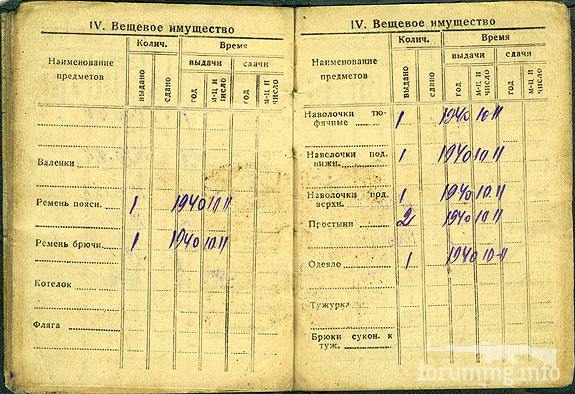 IV. Вещевое имущество
Колич. Время
Наименование предметов выдано сдано выдачи сдачи
год м-ц и число год м-ц и число
Валенки
Ремень поясн. 1 1940 10.11
Ремень брючн. 1 1940 10.11
Котелок
Фляга
IV. Вещевое имущество
Колич. Время
Наименование предметов выдано сдано выдачи сдачи
год м-ц и число год м-ц и число
Наволочки тю-
фячные 1 1940 10.11
Наволочки под.
нижн. 1 1940 10.11
Наволочки под.
верхн. 1 1940 10.11
Простыни 2 1940 10.11
Одеяло 1 1940 10-11
Тужурка
Брюки сукон. к
туж.
forummg.info